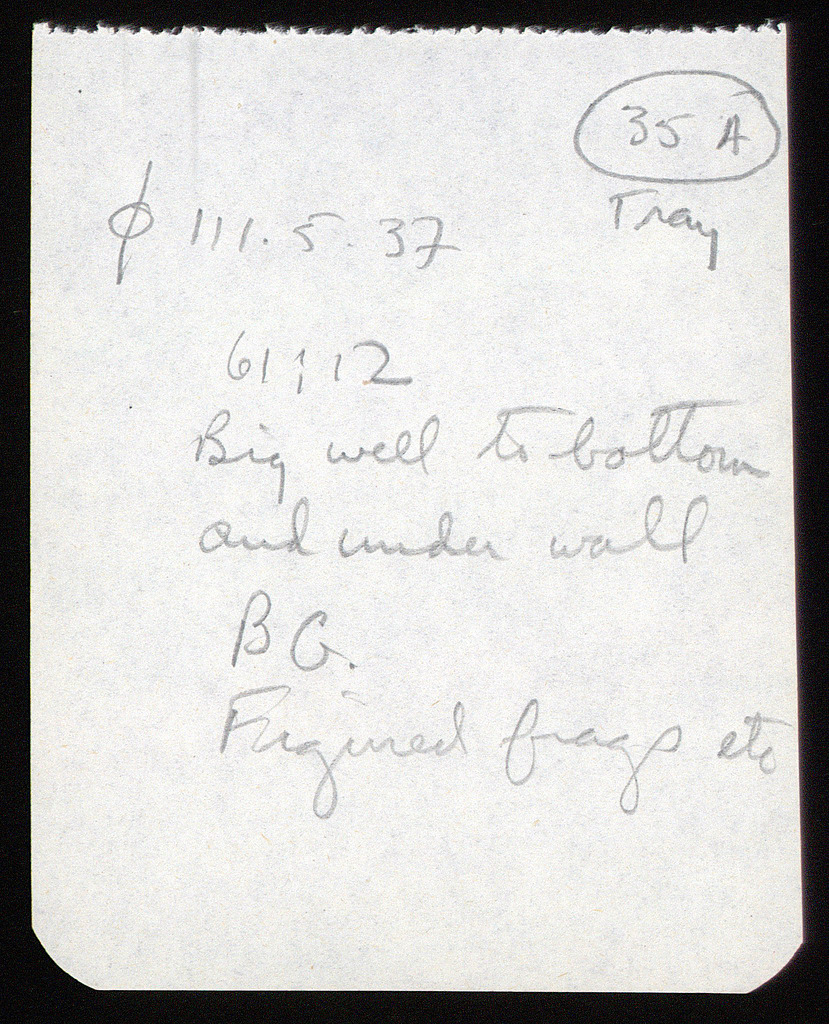 35 A
Tray
φ 111.5.37
61;12
Big well to bottom
and under wall
B G.
Figured frags etc